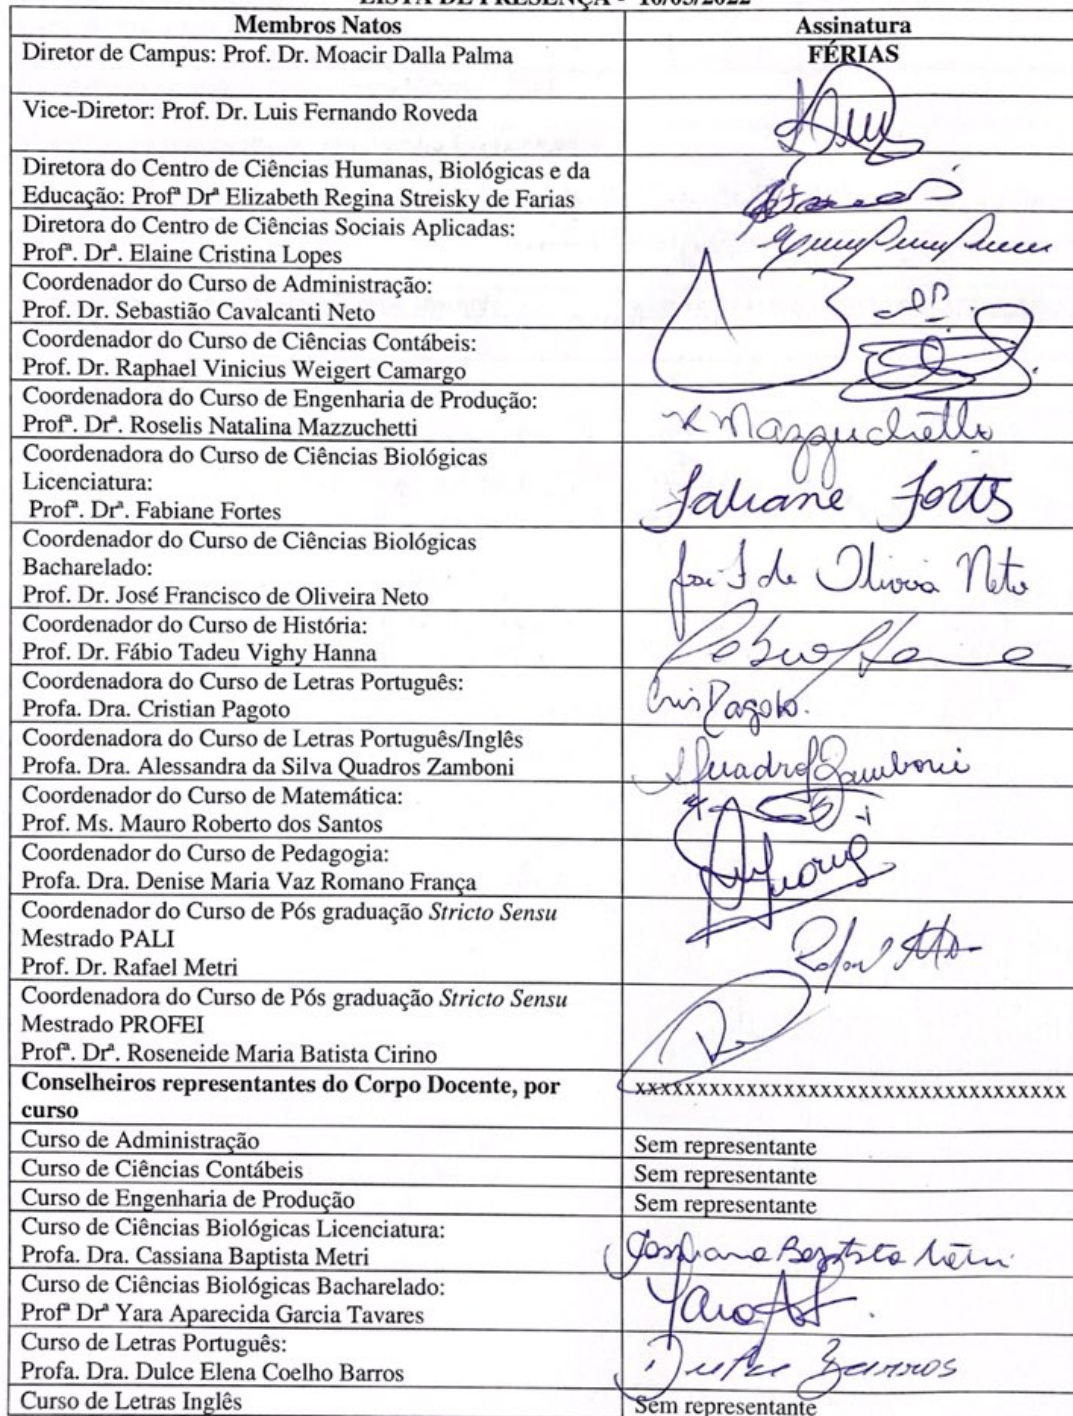 LISTA DE PRESENÇA - 10/05/2022
Membros Natos
Assinatura
Diretor de Campus: Prof. Dr. Moacir Dalla Palma
FÉRIAS
Vice-Diretor: Prof. Dr. Luis Fernando Roveda
Diretora do Centro de Ciências Humanas, Biológicas e da
Educação: Profª Drª Elizabeth Regina Streisky de Farias
Diretora do Centro de Ciências Sociais Aplicadas:
Profª. Drª. Elaine Cristina Lopes
Coordenador do Curso de Administração:
Prof. Dr. Sebastião Cavalcanti Neto
Coordenador do Curso de Ciências Contábeis:
Prof. Dr. Raphael Vinicius Weigert Camargo
Coordenadora do Curso de Engenharia de Produção:
Profª. Drª. Roselis Natalina Mazzuchetti
R Mazzuchetti
Coordenadora do Curso de Ciências Biológicas
Licenciatura:
Profª. Drª. Fabiane Fortes
Fabiane Fortes
Coordenador do Curso de Ciências Biológicas
Bacharelado:
Prof. Dr. José Francisco de Oliveira Neto
José F de Oliveira Neto
Coordenador do Curso de História:
Prof. Dr. Fábio Tadeu Vighy Hanna
Coordenadora do Curso de Letras Português:
Profa. Dra. Cristian Pagoto
Cris Pagoto.
Coordenadora do Curso de Letras Português/Inglês
Profa. Dra. Alessandra da Silva Quadros Zamboni
AQuadrosZamboni
Coordenador do Curso de Matemática:
Prof. Ms. Mauro Roberto dos Santos
Coordenador do Curso de Pedagogia:
Profa. Dra. Denise Maria Vaz Romano França
Coordenador do Curso de Pós graduação Stricto Sensu
Mestrado PALI
Prof. Dr. Rafael Metri
Coordenadora do Curso de Pós graduação Stricto Sensu
Mestrado PROFEI
Profª. Drª. Roseneide Maria Batista Cirino
Conselheiros representantes do Corpo Docente, por
curso
xxxxxxxxxxxxxxxxxxxxxxxxxxxxxxxxxxx
Curso de Administração
Sem representante
Curso de Ciências Contábeis
Sem representante
Curso de Engenharia de Produção
Sem representante
Curso de Ciências Biológicas Licenciatura:
Profa. Dra. Cassiana Baptista Metri
Cassiana Baptista Metri
Curso de Ciências Biológicas Bacharelado:
Profª Drª Yara Aparecida Garcia Tavares
Curso de Letras Português:
Profa. Dra. Dulce Elena Coelho Barros
Dulce Barros
Curso de Letras Inglês
Sem representante